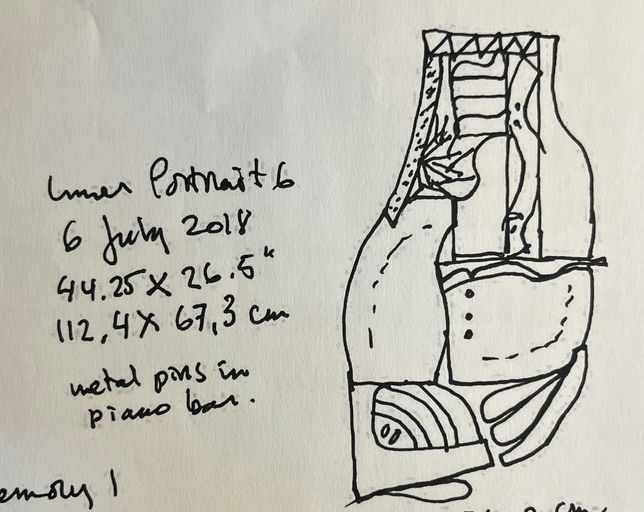 Inner Portrait 6
6 July 2018
44.25 X 26.5"
112,4 X 67,3 cm
metal pins in
piano bar.
emory 1
cm